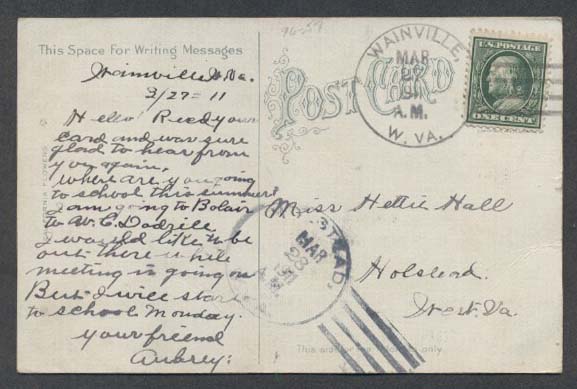 96-59
This Space For Writing Messages
Wainville W. Va.
3/27=11
Hello! Recd your
card and was sure
glad to hear from
you again,
where are you going
to school this summer?
I am going to Bolair
to W. C. Dodrill
I would like to be
out there while
meeting is going on
But I will start
to school Monday.
your friend
Aubrey:
POST CARD
WAINVILLE,
MAR
27
1911
A.M.
W. VA.
U.S. POSTAGE
ONE CENT
Miss Hettie Hall
Holstead.
West. Va.
MAR
28
This
only